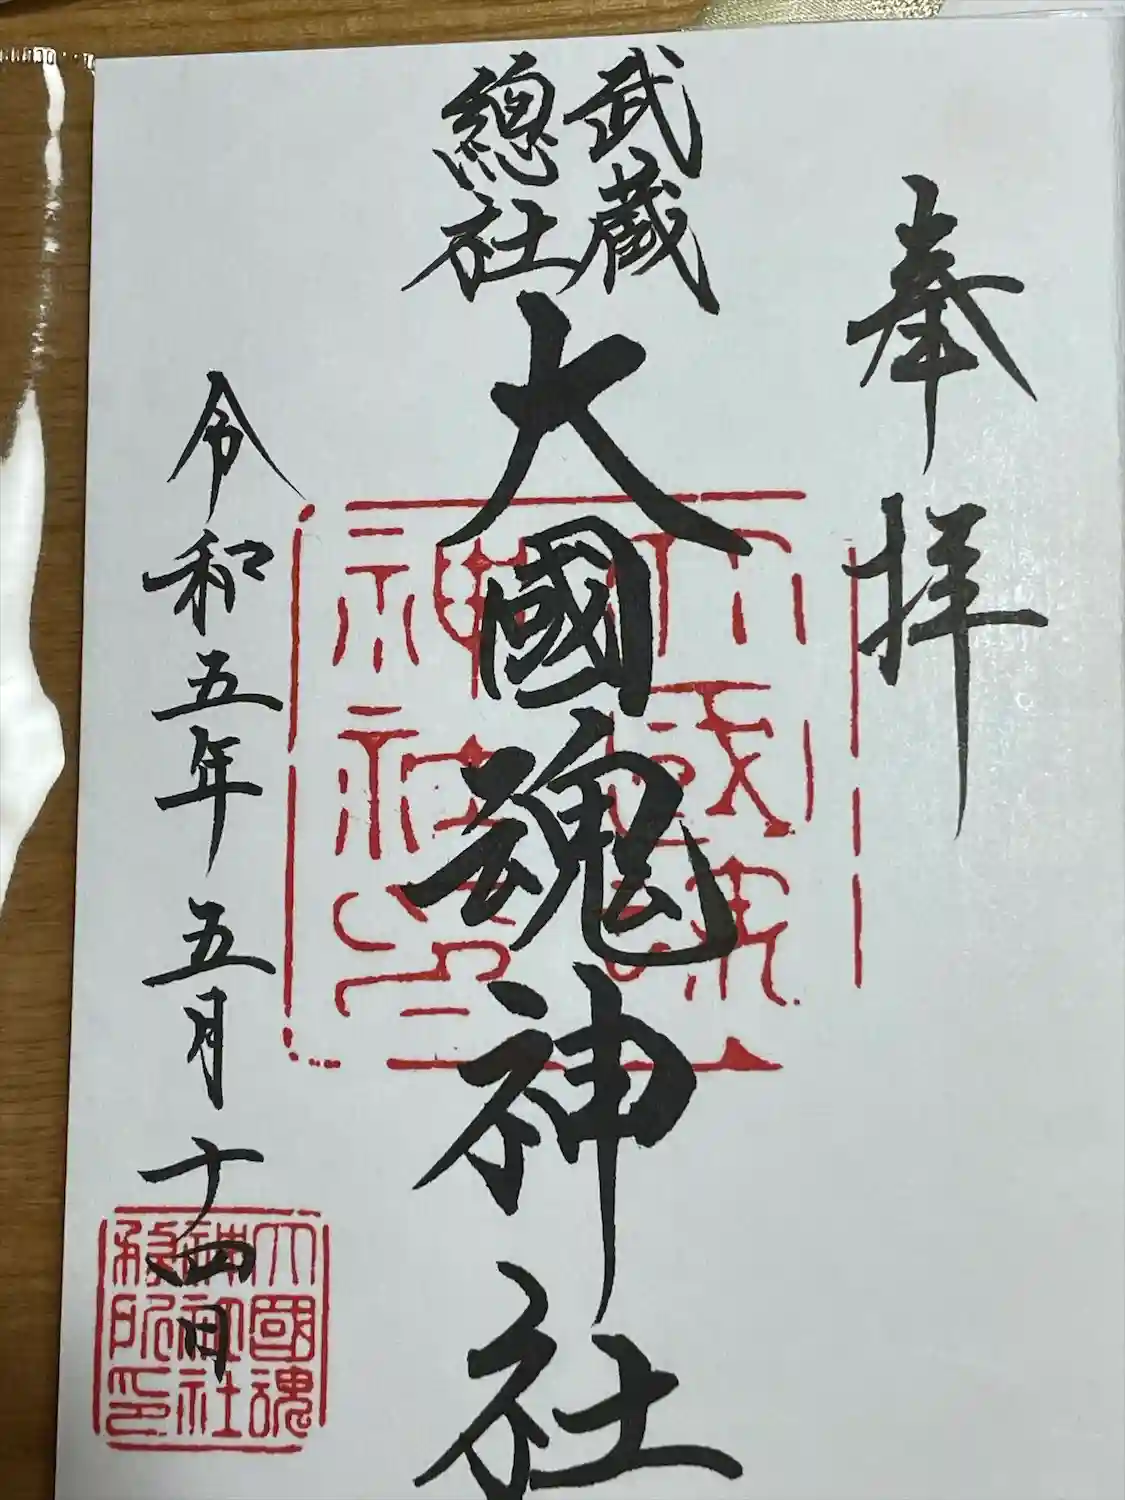 奉拝
武蔵
總社
大國魂神社
令和五年五月十四日
大國魂
神社社
務所印